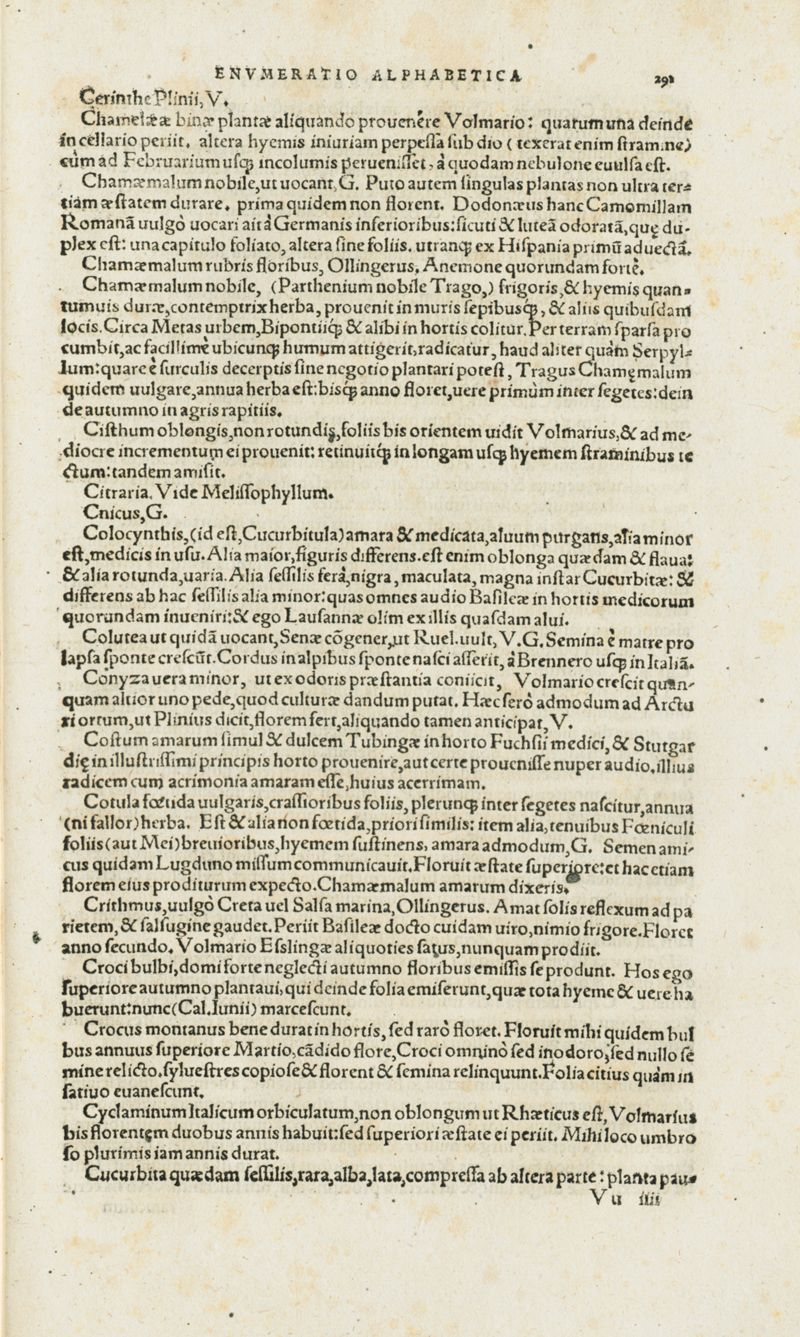 ENVMERATIO ALPHABETICA 291
Cerinthe Plinii, V.
Chamelææ binæ plantæ aliquando prouenêre Volmario: quarum una deinde
in cellario periit, altera hyemis iniuriam perpessa sub dio (texerat enim stramine)
cùm ad Februarium usq; incolumis peruenisset, à quodam nebulone euulsa est.
Chamæmalum nobile, ut uocant, G. Puto autem singulas plantas non ultra ter-
tiam æstatem durare. prima quidem non florent. Dodonæus hanc Camomillam
Romanã uulgò uocari ait à Germanis inferioribus: sicuti & luteã odoratã, quę du-
plex est: una capitulo foliato, altera sine foliis. utranq; ex Hispania primũ aduectã.
Chamæmalum rubris floribus, Ollingerus, Anemone quorundam fortè.
Chamæmalum nobile, (Parthenium nobile Trago,) frigoris, & hyemis quan-
tumuis duræ, contemptrix herba, prouenit in muris sepibusq;, & aliis quibusdam
locis. Circa Metas urbem, Bipontiiq; & alibi in hortis colitur. Per terram sparsa pro
cumbit, ac facillimè ubicunq; humum attigerit, radicatur, haud aliter quàm Serpyl-
lum: quare è surculis decerptis sine negotio plantari potest, Tragus Chamęmalum
quidem uulgare, annua herba est: bisq́; anno floret, uere primùm inter segetes: dein
de autumno in agris rapitiis.
Cisthum oblongis, non rotundis, foliis bis orientem uidit Volmarius, & ad me-
diocre incrementum ei prouenit: retinuitq́; in longam usq; hyemem straminibus te
ctum: tandem amisit.
Citraria. Vide Melissophyllum.
Cnicus, G.
Colocynthis, (id est, Cucurbitula) amara & medicata, aluum purgans, alia minor
est, medicis in usu. Alia maior, figuris differens. est enim oblonga quædam & flaua:
& alia rotunda, uaria. Alia sessilis ferà, nigra, maculata, magna instar Cucurbitæ: &
differens ab hac sessilis alia minor: quas omnes audio Basileæ in hortis medicorum
quorundam inueniri: & ego Lausannæ olim ex illis quasdam alui.
Colutea ut quidã uocant, Senæ cõgener, ut Ruel. uult, V. G. Semina è matre pro
lapsa sponte crescũt. Cordus in alpibus sponte nasci asserit, à Brennero usq; in Italiã.
Conyza uera minor, ut ex odoris præstantia coniicit, Volmario crescit quan-
quam altior uno pede, quod culturæ dandum putat. Hæc serò admodum ad Arctu
ri ortum, ut Plinius dicit, florem fert, aliquando tamen anticipat, V.
Costum amarum simul & dulcem Tubingæ in horto Fuchsii medici, & Stutgar
dię in illustrissimi principis horto prouenire, aut certe prouenisse nuper audio. illius
radicem cum acrimonia amaram esse, huius acerrimam.
Cotula fœtida uulgaris, crassioribus foliis, plerunq; inter segetes nascitur, annua
(ni fallor) herba. Est & alia non fœtida, priori similis: item alia, tenuibus Fœniculi
foliis (aut Mei) breuioribus, hyemem sustinens, amara admodum, G. Semen ami-
cus quidam Lugduno missum communicauit. Floruit æstate superiore: et hac etiam
florem eius proditurum expecto. Chamæmalum amarum dixeris.
Crithmus, uulgò Creta uel Salsa marina, Ollingerus. Amat solis reflexum ad pa
rietem, & salsugine gaudet. Periit Basileæ docto cuidam uiro, nimio frigore. Floret
anno secundo. Volmario Esslingæ aliquoties satus, nunquam prodiit.
Croci bulbi, domi forte neglecti autumno floribus emissis se produnt. Hos ego
superiore autumno plantaui, qui deinde folia emiserunt, quæ tota hyeme & uere ha
buerunt: nunc (Cal. Iunii) marcescunt.
Crocus montanus bene durat in hortis, sed rarò floret. Floruit mihi quidem bul
bus annuus superiore Martio, cãdido flore, Croci omnino sed inodoro, sed nullo se
mine relicto. syluestres copiose & florent & semina relinquunt. Folia citius quàm in
satiuo euanescunt.
Cyclaminum Italicum orbiculatum, non oblongum ut Rhæticus est, Volmarius
bis florentem duobus annis habuit: sed superiori æstate ei periit. Mihi loco umbro
so plurimis iam annis durat.
Cucurbita quædam sessilis, rara, alba, lata, compressa ab altera parte: planta pau-
Vu iiii